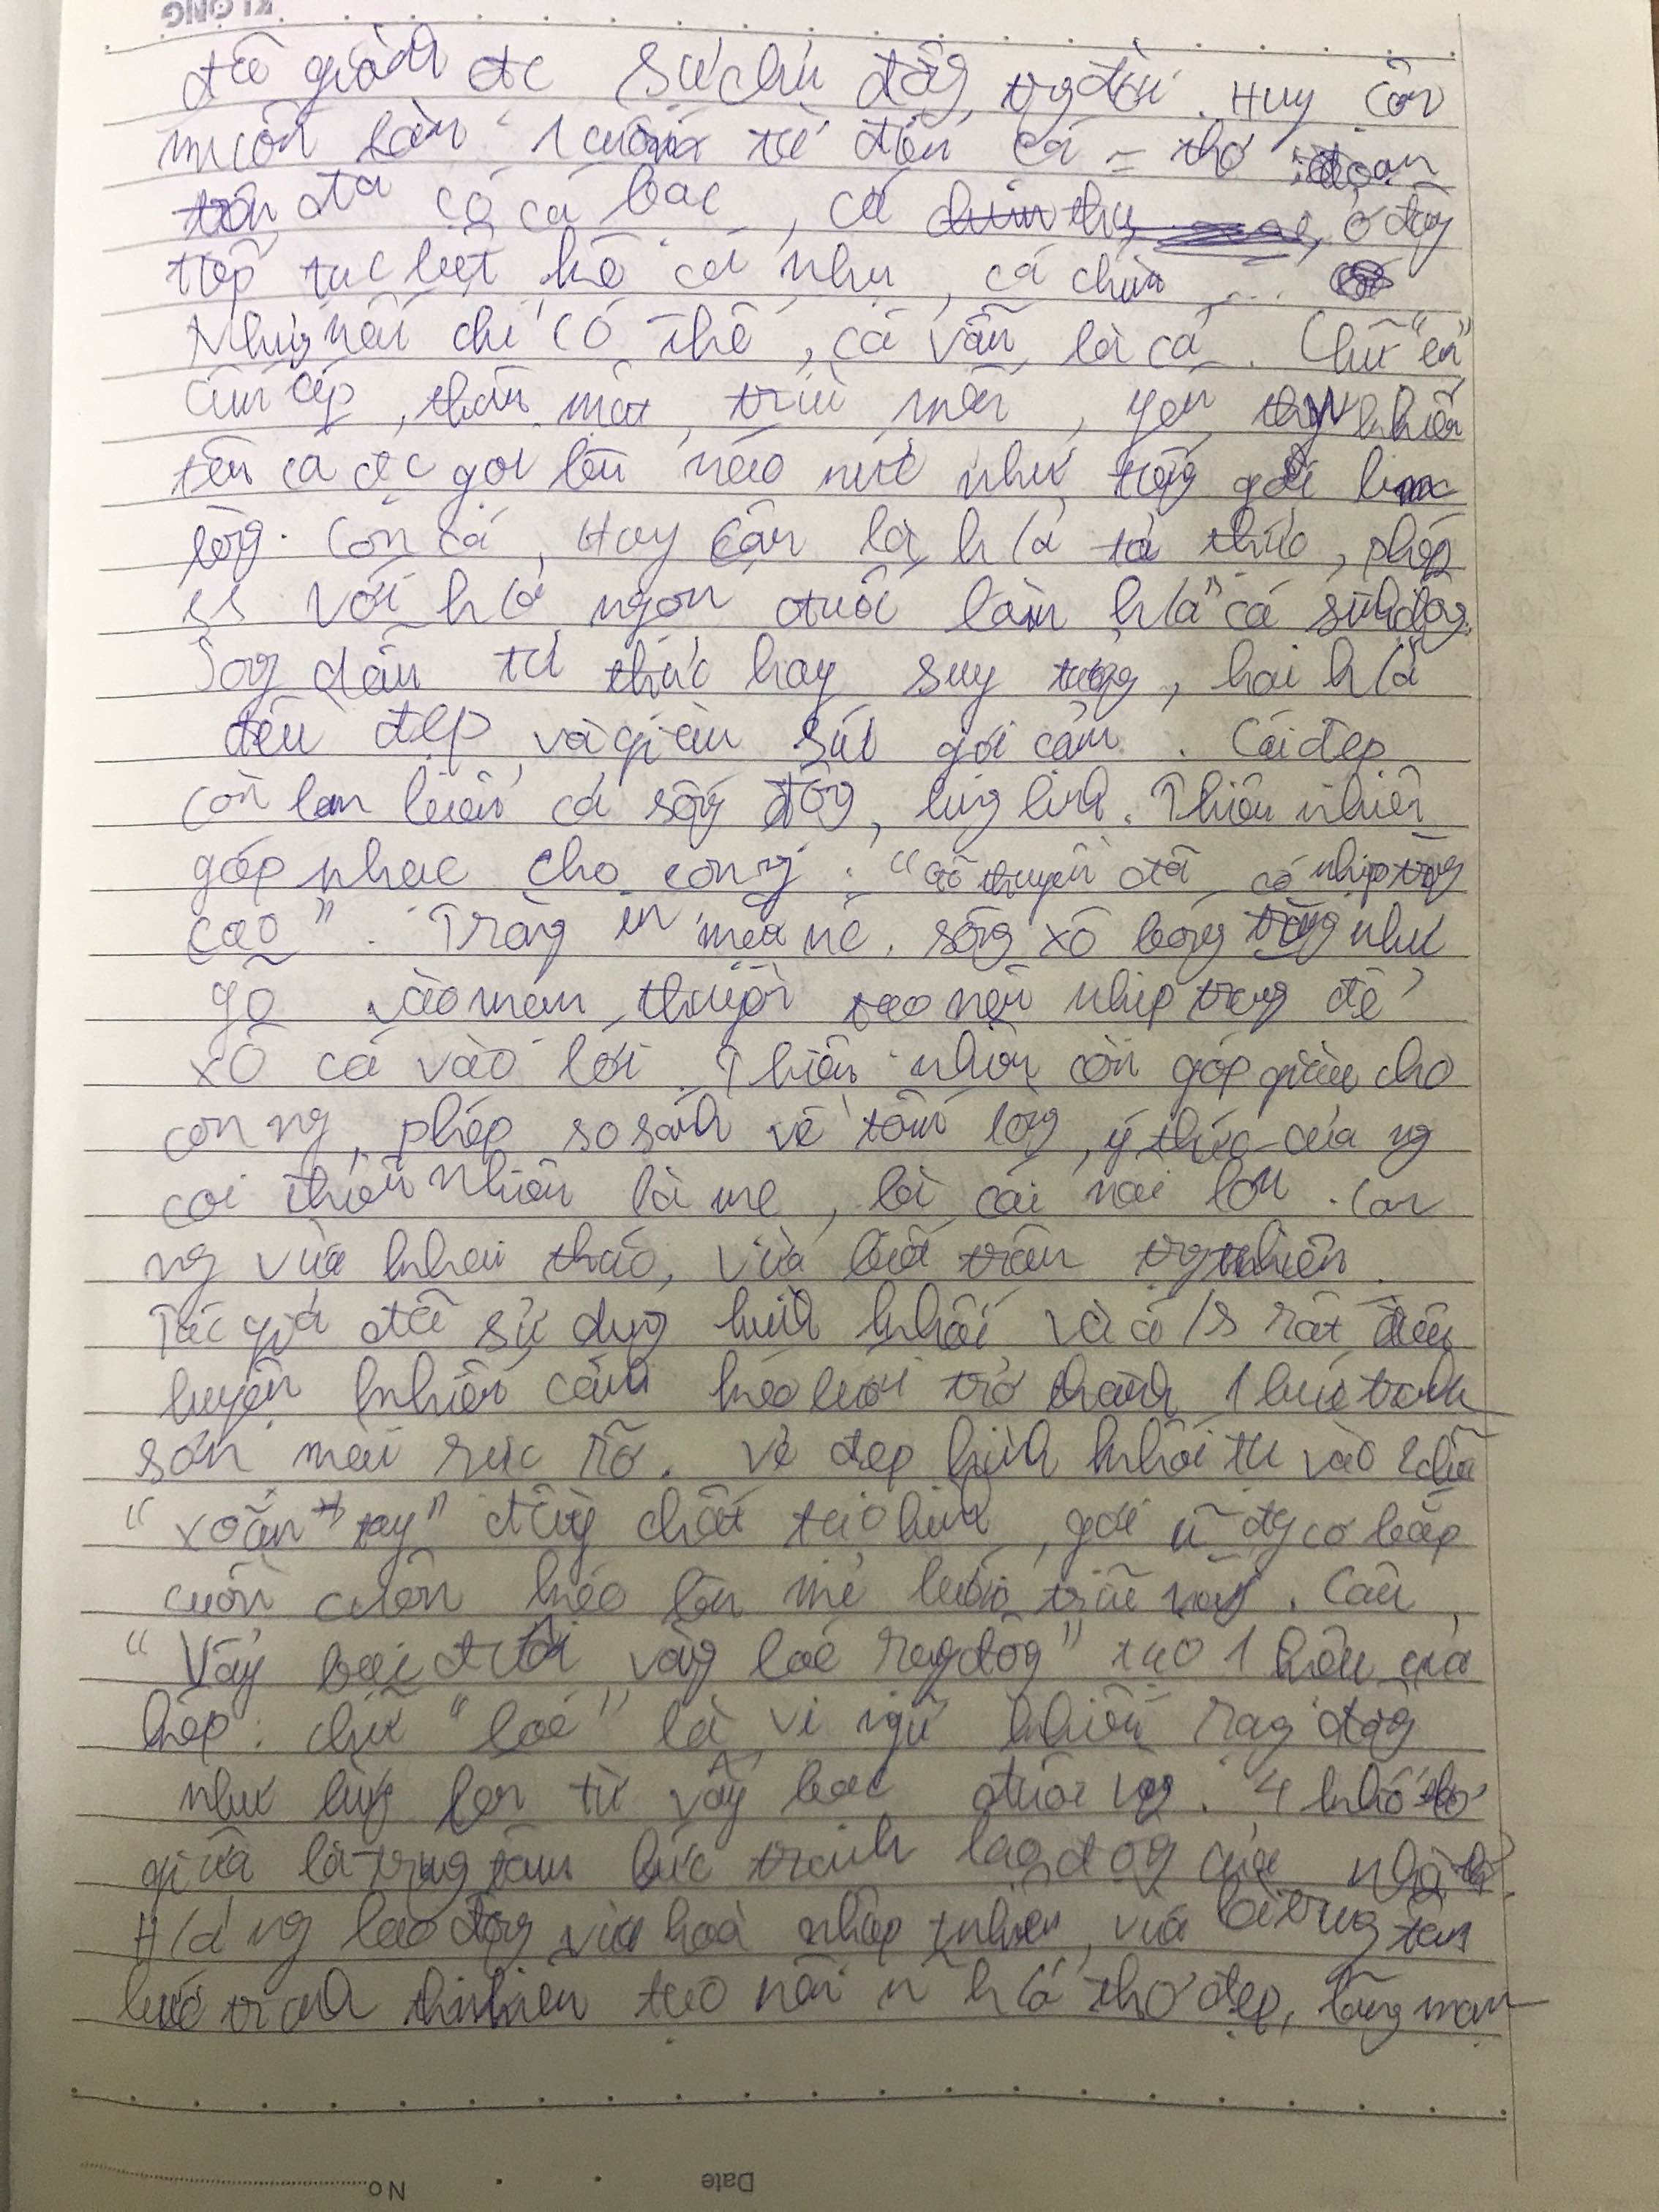 KLONG
đã giành đc sự chủ động trg đời. Huy Cận
muốn làm 1 cuốn từ điển cá = thơ: đoạn
trên đã có cá bạc, cá thu, ở đây
tiếp tục liệt kê cá nhụ, cá chim ...
Nhưng nếu chỉ có thế, cá vẫn là cá. Chữ "em"
âu yếm, thân mật, trìu mến, yêu khiến
tên cá đc gọi lên náo nức như tiếng gọi
lòng. Con cá, Huy Cận là h/ả tả thực, phép
ss với h/ả ngọn đuốc làm h/ả cá sinh động.
Song dẫu tả thực hay suy tưởng, hai h/ả
đều đẹp và giàu sức gợi cảm. Cái đẹp
còn làm cá sống động, lung linh. Thiên nhiên
góp nhạc cho con ng: "Gõ thuyền đã có nhịp trăng
cao". Trăng in mặt nc, sóng xô bóng trăng như
gõ vào mạn thuyền tạo nên nhịp trăng để
xô cá vào lưới. Thiên nhiên còn góp giàu cho
con ng, phép so sánh về tấm lòng, ý thức của ng
coi thiên nhiên là mẹ, là cái nôi lớn. Con
ng vừa khai thác, vừa biết trân trg nhiên.
Tác giả đã sử dụng hình khối và á/s rất điêu
luyện khiến cảnh kéo lưới trở thành 1 bức tranh
sơn mài rực rỡ. Vẻ đẹp hình khối tụ vào chữ
"xoăn tay" đầy chất tạo hình, gợi cơ bắp
cuồn cuộn kéo lên mẻ lưới trĩu nặng. Câu
"Vảy bạc đuôi vàng loé rạng đông" tạo 1 hiệu quả
kép: chữ "loé" là vị ngữ khiến rạng đông
như bừng lên từ vảy bạc đuôi vàng. 4 khổ thơ
giữa là trung tâm bức tranh lao động của nhà thơ.
H/ả ng lao động vừa hoà nhập tnhiên, vừa là trung tâm
bức tranh thnhiên tạo nên n~ h/ả thơ đẹp, lãng mạn
No
Date